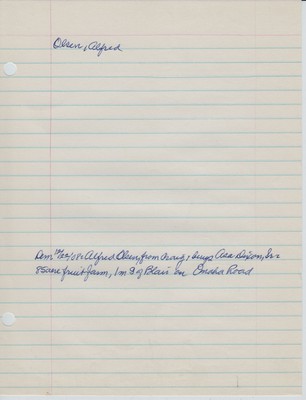 Olsen, Alfred
Dem 10/22/08: Alfred Olsen, from Craig, buys Asa Dixon, Sr.
85acre fruit farm, 1 m S of Blair on Omaha Road